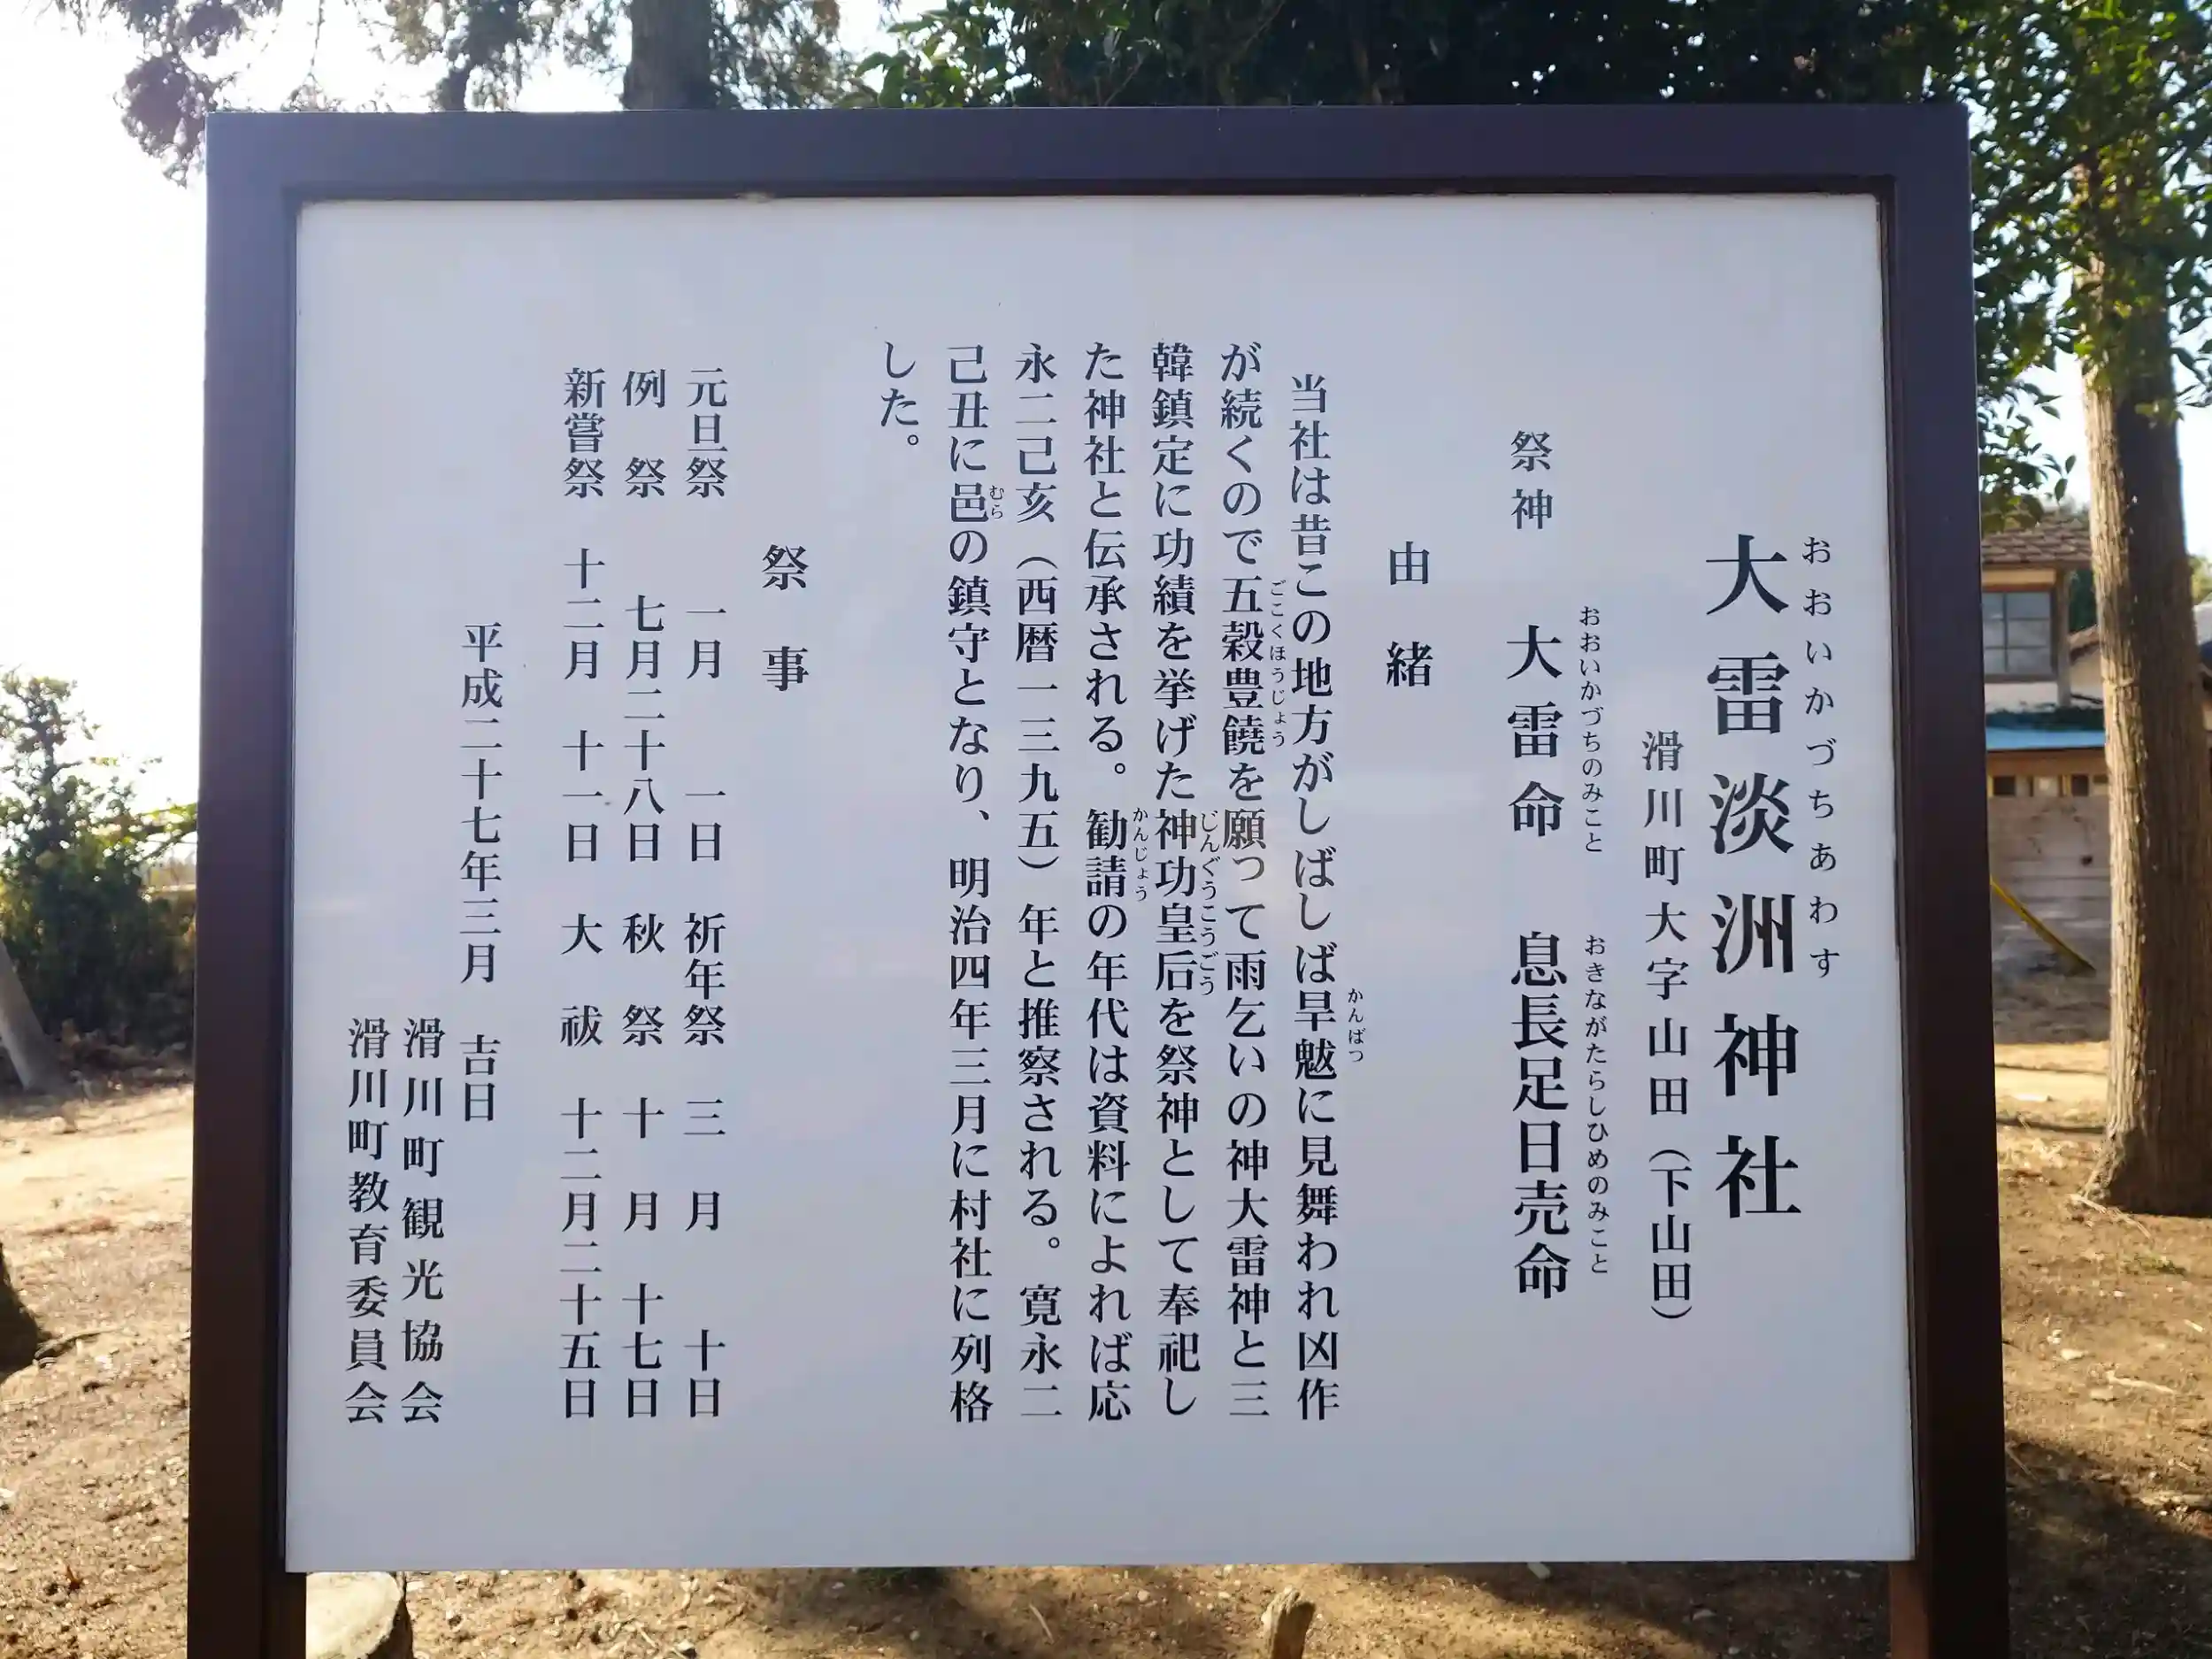 大雷淡洲神社
おおいかづちあわす
滑川町大字山田（下山田）
祭神　大雷命　息長足日売命
おおいかづちのみこと　おきながたらしひめのみこと
由緒
当社は昔この地方がしばしば旱魃に見舞われ凶作
かんばつ
が続くので五穀豊饒を願って雨乞いの神大雷神と三
ごこくほうじょう
韓鎮定に功績を挙げた神功皇后を祭神として奉祀し
じんぐうこうごう
た神社と伝承される。勧請の年代は資料によれば応
かんじょう
永二己亥（西暦一三九五）年と推察される。寛永二
己丑に邑の鎮守となり、明治四年三月に村社に列格
むら
した。
祭事
元旦祭　一月　一日　祈年祭　三月　十日
例祭　七月二十八日　秋祭　十月　十七日
新嘗祭　十二月　十一日　大祓　十二月二十五日
平成二十七年三月　吉日
滑川町観光協会
滑川町教育委員会